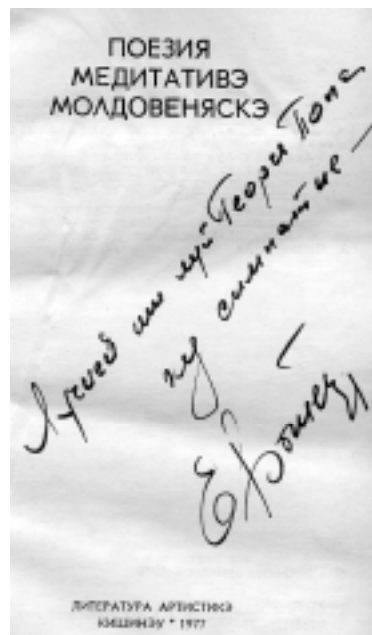 ПОЕЗИЯ
МЕДИТАТИВЭ
МОЛДОВЕНЯСКЭ
ши луй Георге Попа
ку симпатие —
ЛИТЕРАТУРА АРТИСТИКЭ
КИШИНЭУ * 1977